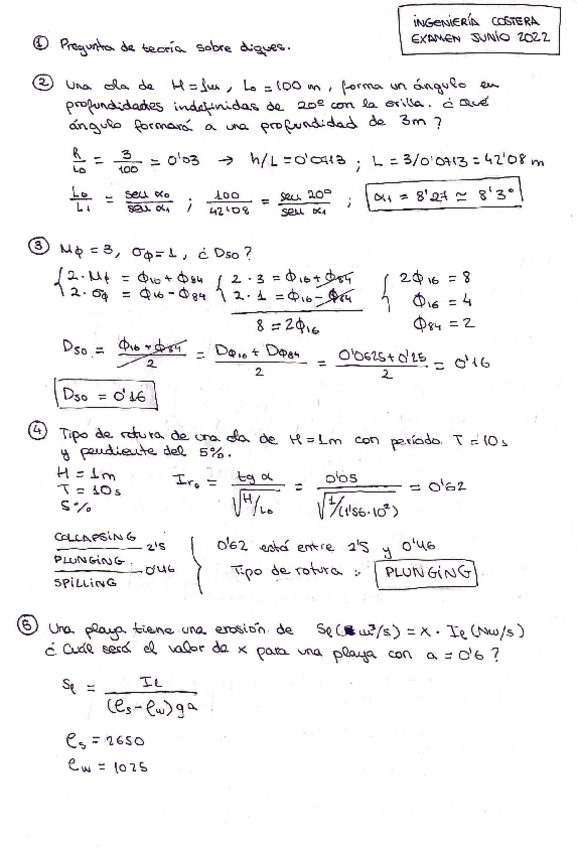 INGENIERÍA COSTERA
EXAMEN JUNIO 2022
① Pregunta de teoría sobre diques.
② Una ola de H=1m, L₀=100 m, forma un ángulo en
profundidades indefinidas de 20º con la orilla. ¿Qué
ángulo formará a una profundidad de 3m?
h/L₀ = 3/100 = 0'03 → h/L=0'0713 ; L = 3/0'0713=42'08 m
L₀/L₁ = sen α₀/sen α₁ ; 100/42'08 = sen 20º/sen α₁ ; α₁ = 8'27 ≃ 8'3º
③ Mϕ = 3, σϕ=1, ¿D50?
2·Mϕ = ϕ16+ϕ84 { 2·3=ϕ16+ϕ84 { 2ϕ16 = 8
2·σϕ = ϕ16-ϕ84 2·1=ϕ16-ϕ84 ϕ16 = 4
8 = 2ϕ16 ϕ84 = 2
D50 = ϕ16+ϕ84/2 = Dϕ16+Dϕ84/2 = 0'0625+0'25/2 = 0'16
D50 = 0'16
④ Tipo de rotura de una ola de H=1m con período T=10s
y pendiente del 5%.
H = 1m
T = 10s
5%
Ir₀ = tg α/√H/L₀ = 0'05/√1/(1'56·10²) = 0'62
COLLAPSING
2'5
PLUNGING
0'46
SPILLING
0'62 está entre 2'5 y 0'46
Tipo de rotura : PLUNGING
⑤ Una playa tiene una erosión de Sℓ(m³/s) = x · Iℓ(Nw/s)
¿Cuál será el valor de x para una playa con a=0'6?
Sℓ = Iℓ/(ρs-ρw)ga
ρs = 2650
ρw = 1025